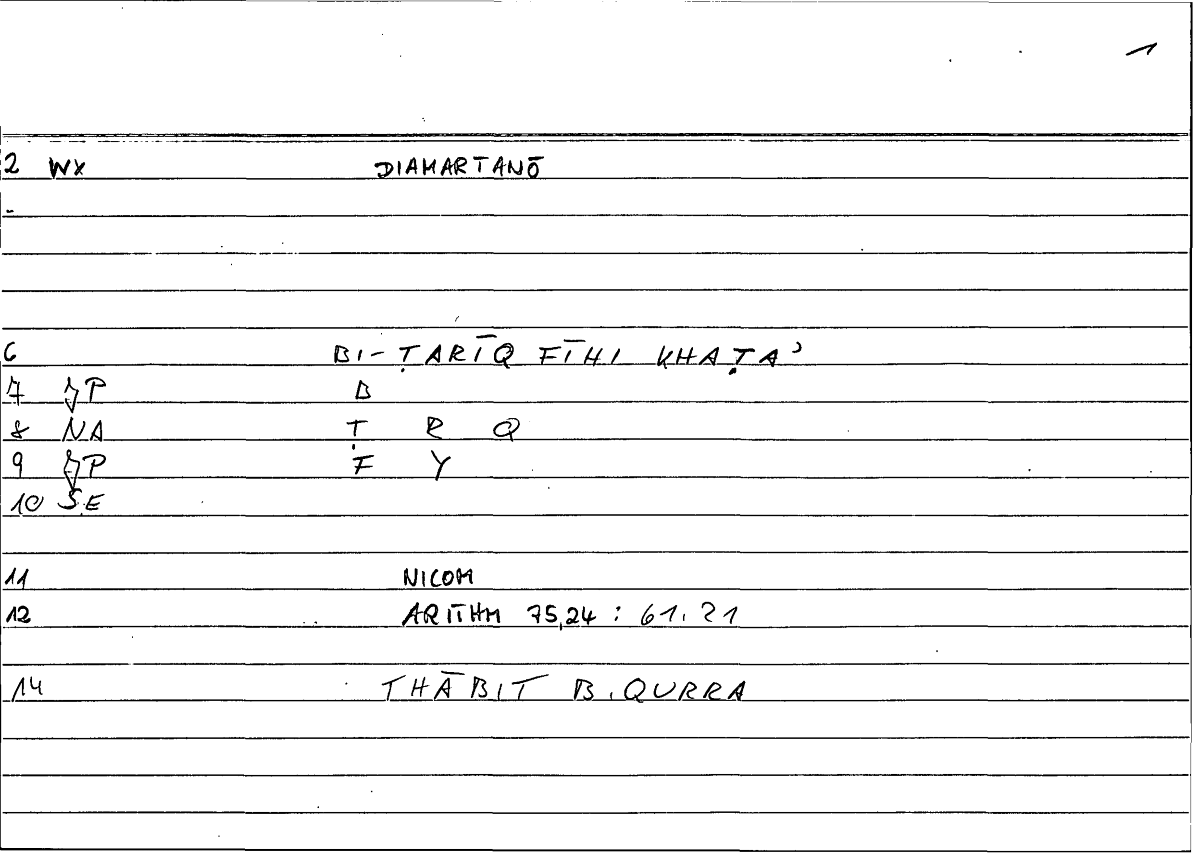 1
2 WX DIAMARTANŌ
6 BI-ṬARĪQ FĪHI KHAṬAʾ
7 ZP B
8 NA Ṭ R Q
9 ZP F Y
10 SE
11 NICOM
12 ARITHM 75,24 : 61.21
14 THĀBIT B.QURRA